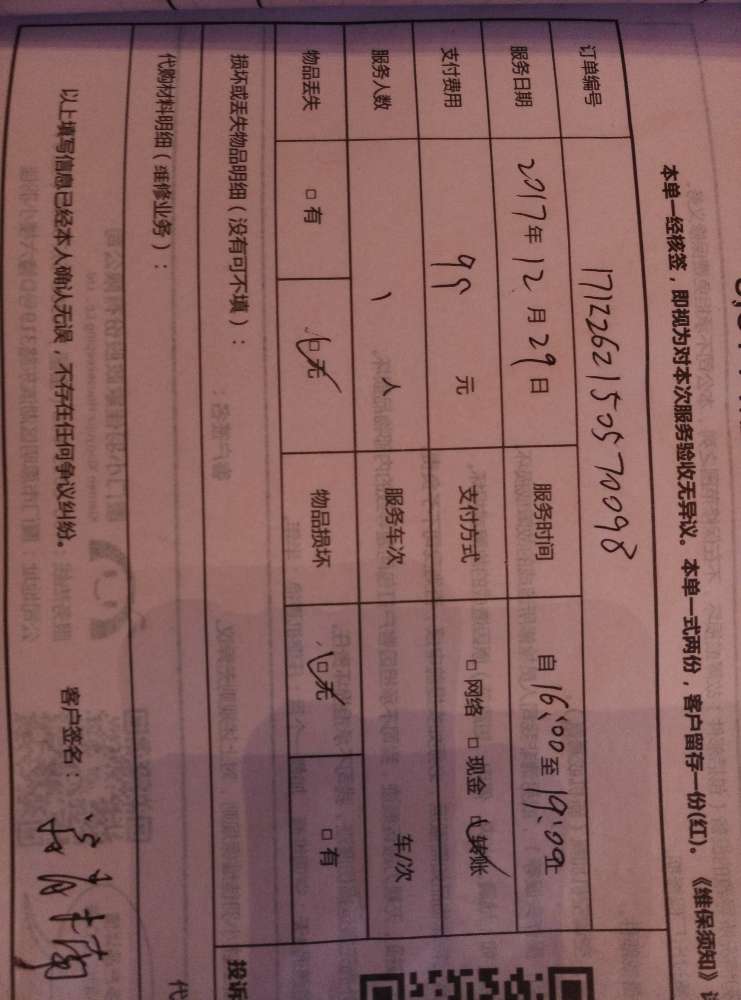 本单一经核签，即视为对本次服务验收无异议。本单一式两份，客户留存一份(红)。《维保须知》
订单编号 17122621505570098
服务日期 2017年12月29日 服务时间 自16:00至19:00止
支付费用 99 元 支付方式 □网络 □现金 ☑转账
服务人数 1 人 服务车次 车/次
物品丢失 □有 ☑无 物品损坏 ☑无 □有
损坏或丢失物品明细（没有可不填）： 投诉
代购材料明细（维修业务）： 代
以上填写信息已经本人确认无误，不存在任何争议纠纷。 客户签名：